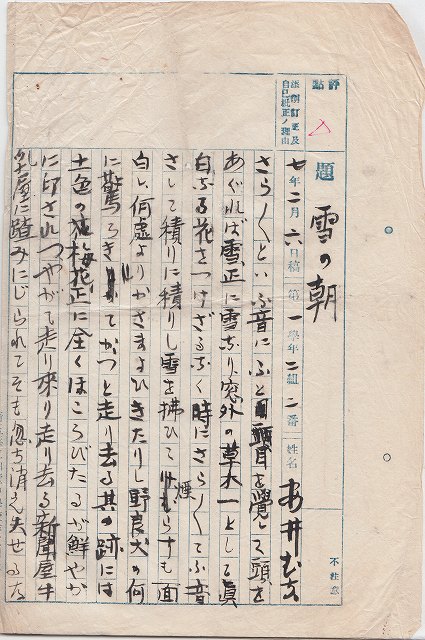 評點
添削訂正及
自己糾正ノ理由
題 雪の朝
七年二月六日稿 第一學年二組二番 姓名
不注意
さら〱といふ音にふと目を覺して頭を
あぐれば雪正に雪なり窓外の草木一として眞
白なる花をつけざるなく時にさら〱てふ音
さして積りに積りし雪を拂ひて煙らすも面
白し何處よりかさまよひきたりし野良犬の何
に驚ろきてかつと走り去る其の跡には
土色の梅花正に全くほころびたるが鮮やか
に印されつやがて走り來り走り去る新聞屋牛
乳屋に踏みにじられてそも忽ち消え失せるな